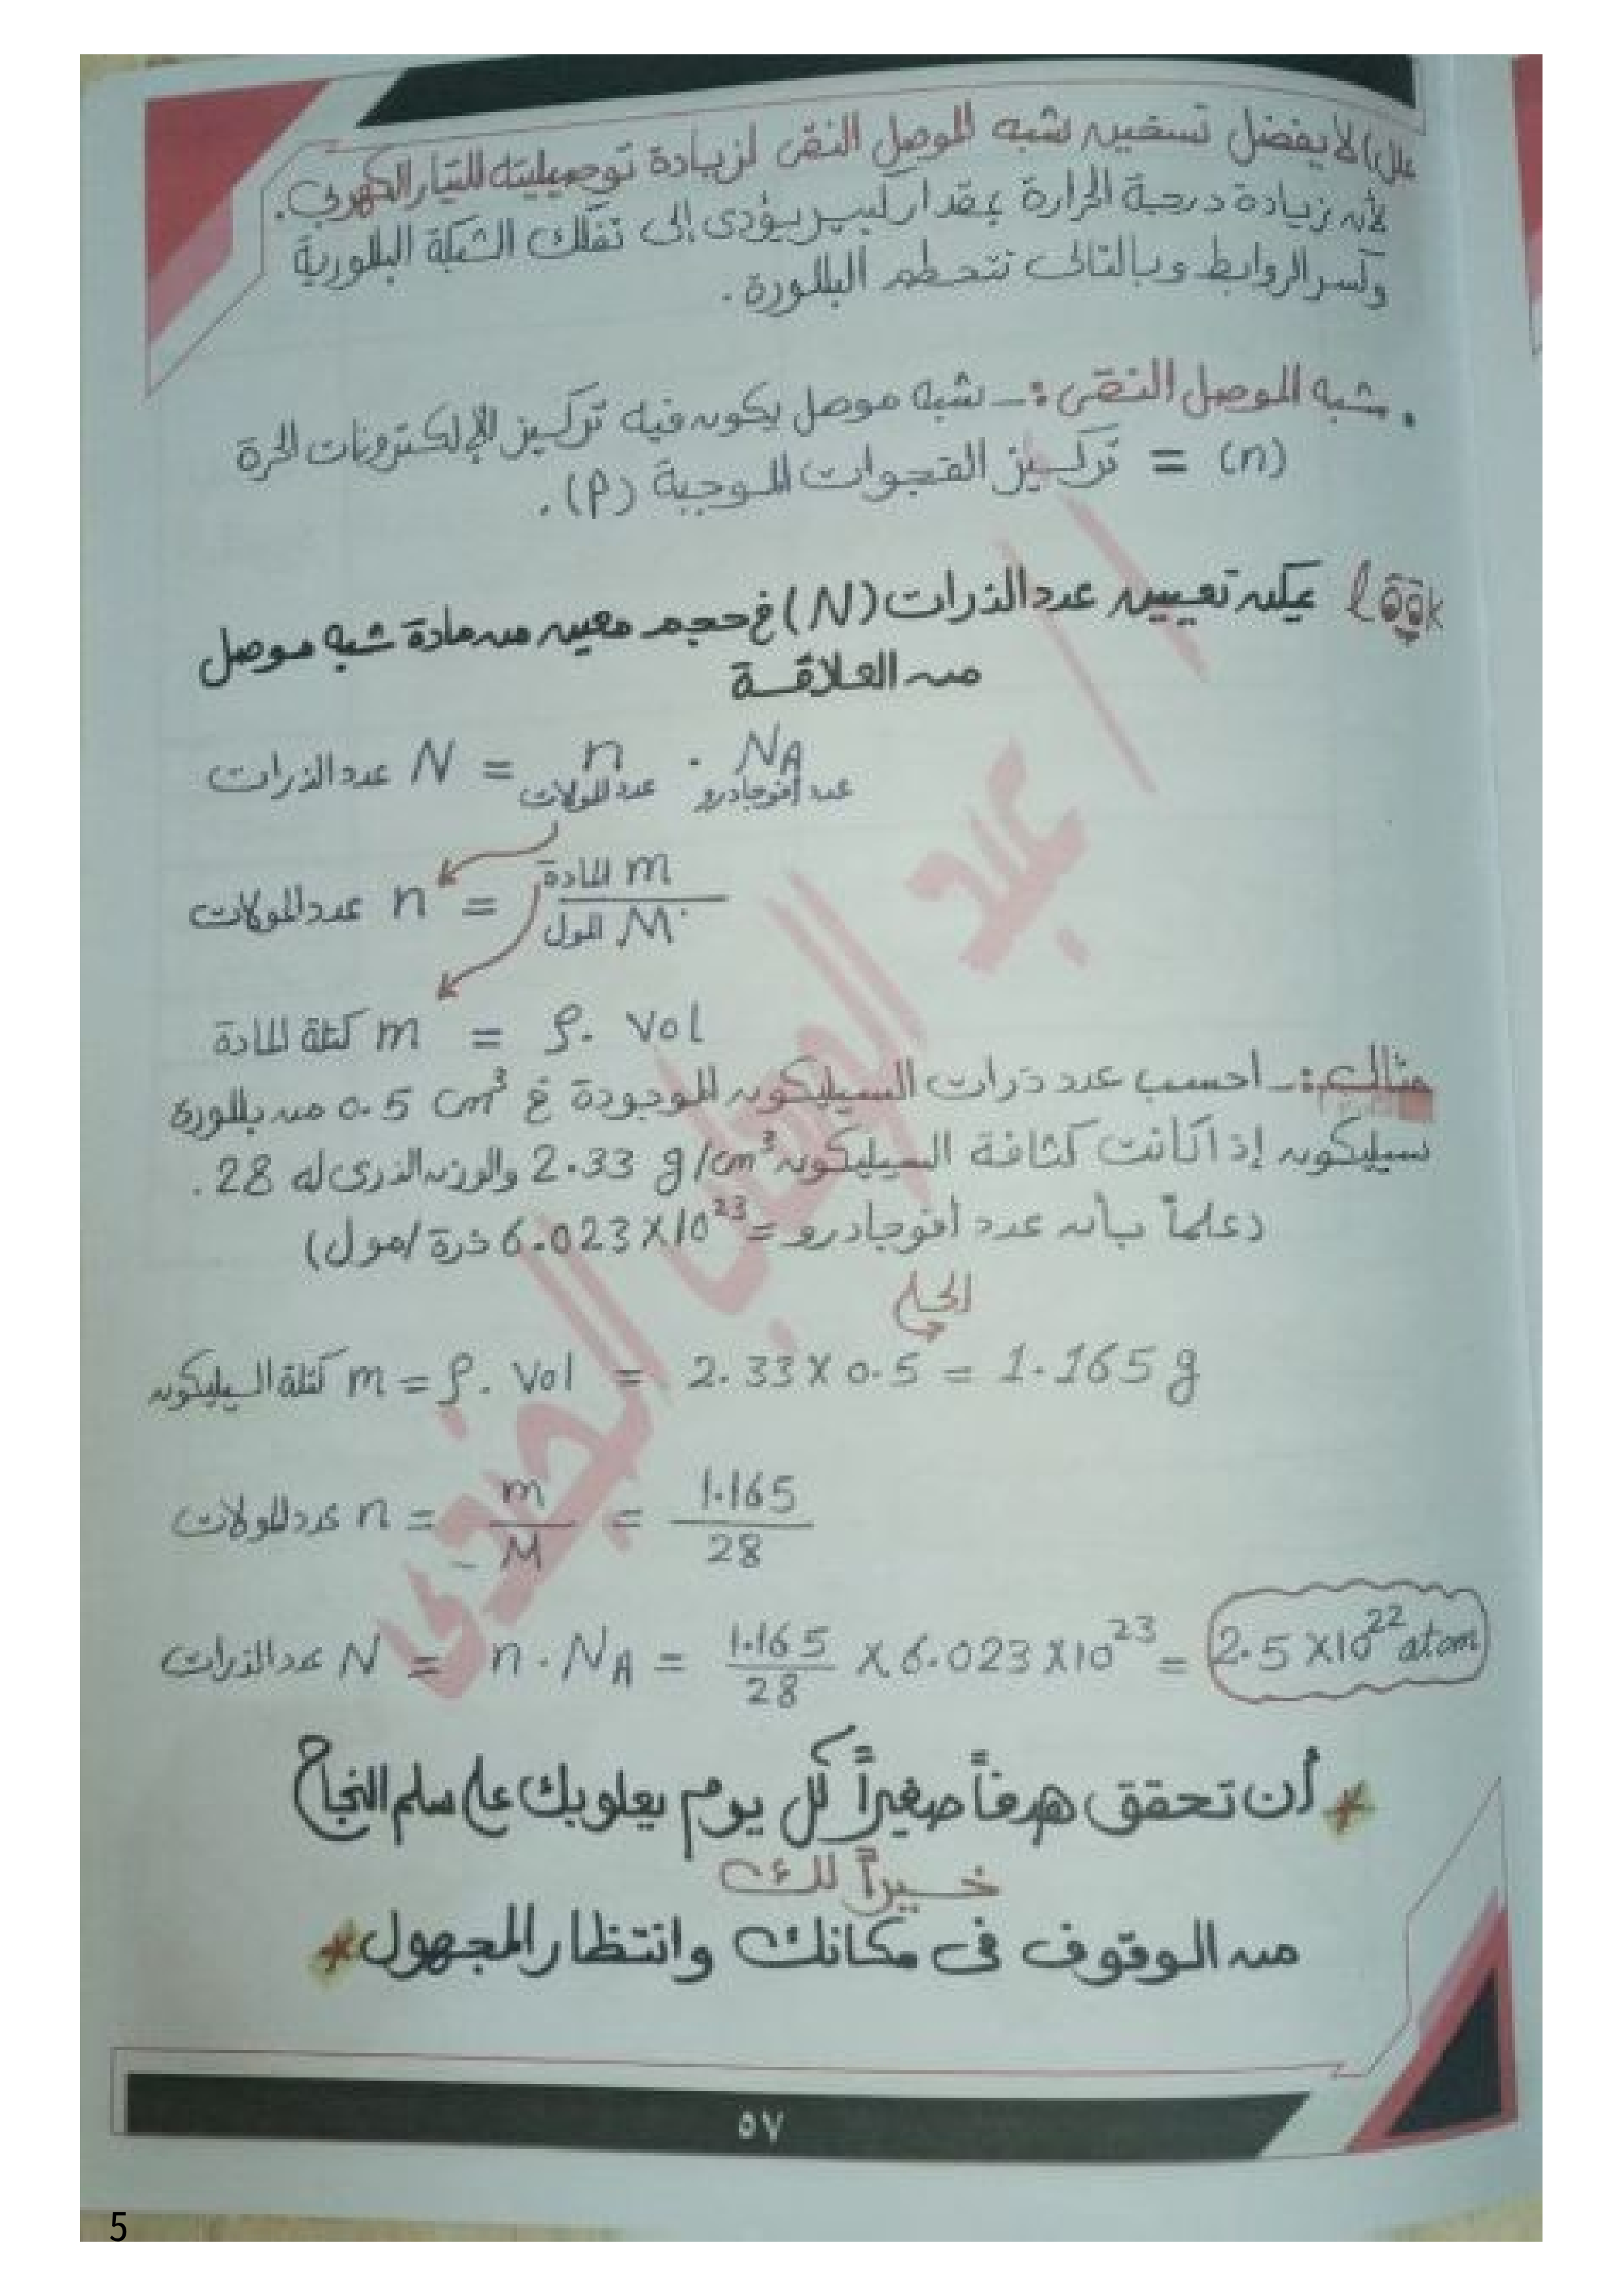 علل) لا يفضل تسخين شبه الموصل النقى لزيادة توصيليته للتيار الكهربي.
لأنه بزيادة درجة الحرارة بمقدار كبير يؤدى إلى تفكك الشبكة البللورية
وكسر الروابط وبالتالى تتحطم البللورة.
. شبه الموصل النقى :- شبه موصل يكون فيه تركيز الإلكترونات الحرة
(n) = تركيز الفجوات الموجبة (p).
look يمكن تعيين عدد الذرات (N) في حجم معين من مادة شبه موصل
من العلاقة
عدد الذرات N = n . NA
عدد المولات عدد أفوجادرو
عدد المولات n = m المادة / M المول
كتلة المادة m = ρ. Vol
مثال :- احسب عدد ذرات السيليكون الموجودة في 0.5 cm³ من بللورة
سيليكون إذا كانت كثافة السيليكون 2.33 g/cm³ والوزن الذرى له 28.
(علماً بأن عدد أفوجادرو = 6.023X10²³ ذرة/مول)
الحل
كتلة السيليكون m = ρ. Vol = 2.33 X 0.5 = 1.165 g
عدد المولات n = m / M = 1.165 / 28
عدد الذرات N = n . NA = 1.165 / 28 X 6.023 X10²³ = 2.5 X10²² atom
* أن تحقق هدفاً صغيراً كل يوم يعلو بك على سلم النجاح
خيراً لك
من الوقوف فى مكانك وانتظار المجهول *
٥٧
5